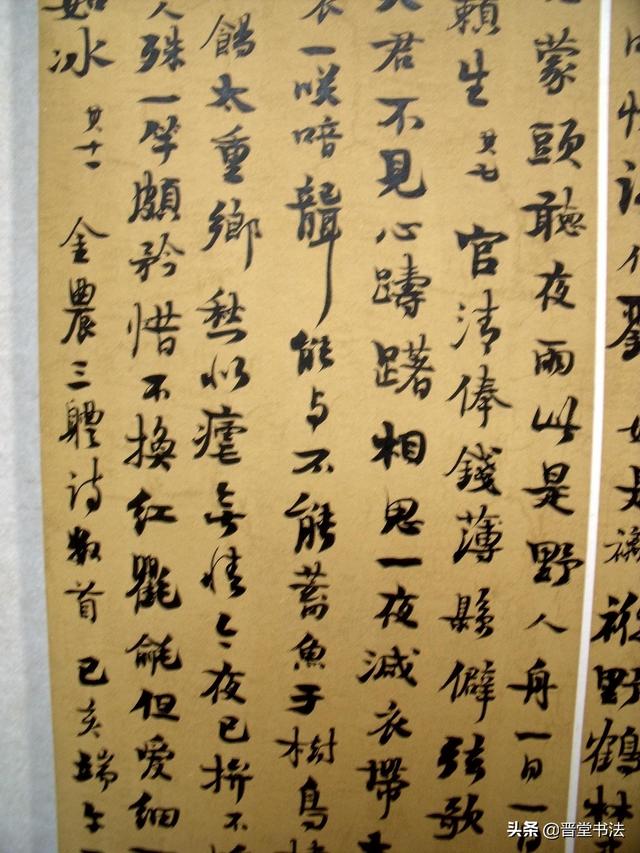 蒙頭聽夜雨此是野人舟一日一
賴生 其七 官清俸錢薄縣僻弦歌
君不見心躊躇相思一夜減衣帶
一咲喑聾能与不能蓄魚子樹鳥
餳太重鄉愁似瘧無情今夜已拚不
殊一竿頗矜惜不換紅氍毹但愛細
如冰 其十一 金農三體詩數首 己亥端午
头条 @晋堂书法